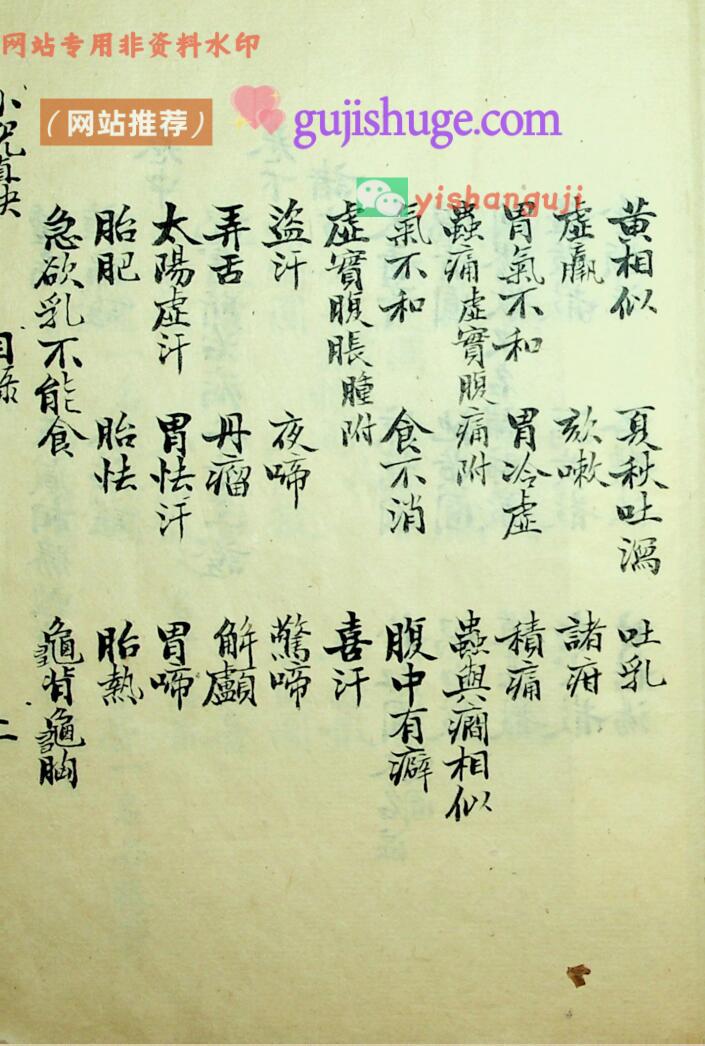 网站专用非资料水印
（网站推荐）
gujishuge.com
yishanguji
黃相似 夏秋吐瀉 吐乳
虛羸 欬嗽 諸疳
胃氣不和 胃冷虛 積痛
蟲痛虛實腹痛附 蟲與癇相似
氣不和 食不消 腹中有癖
虛實腹脹腫附 喜汗
盜汗 夜啼 驚啼
弄舌 丹瘤 解顱
太陽虛汗 胃怯汗 胃啼
胎肥 胎怯 胎熱
急欲乳不能食 龜背龜胸
小兒直決 目录 二